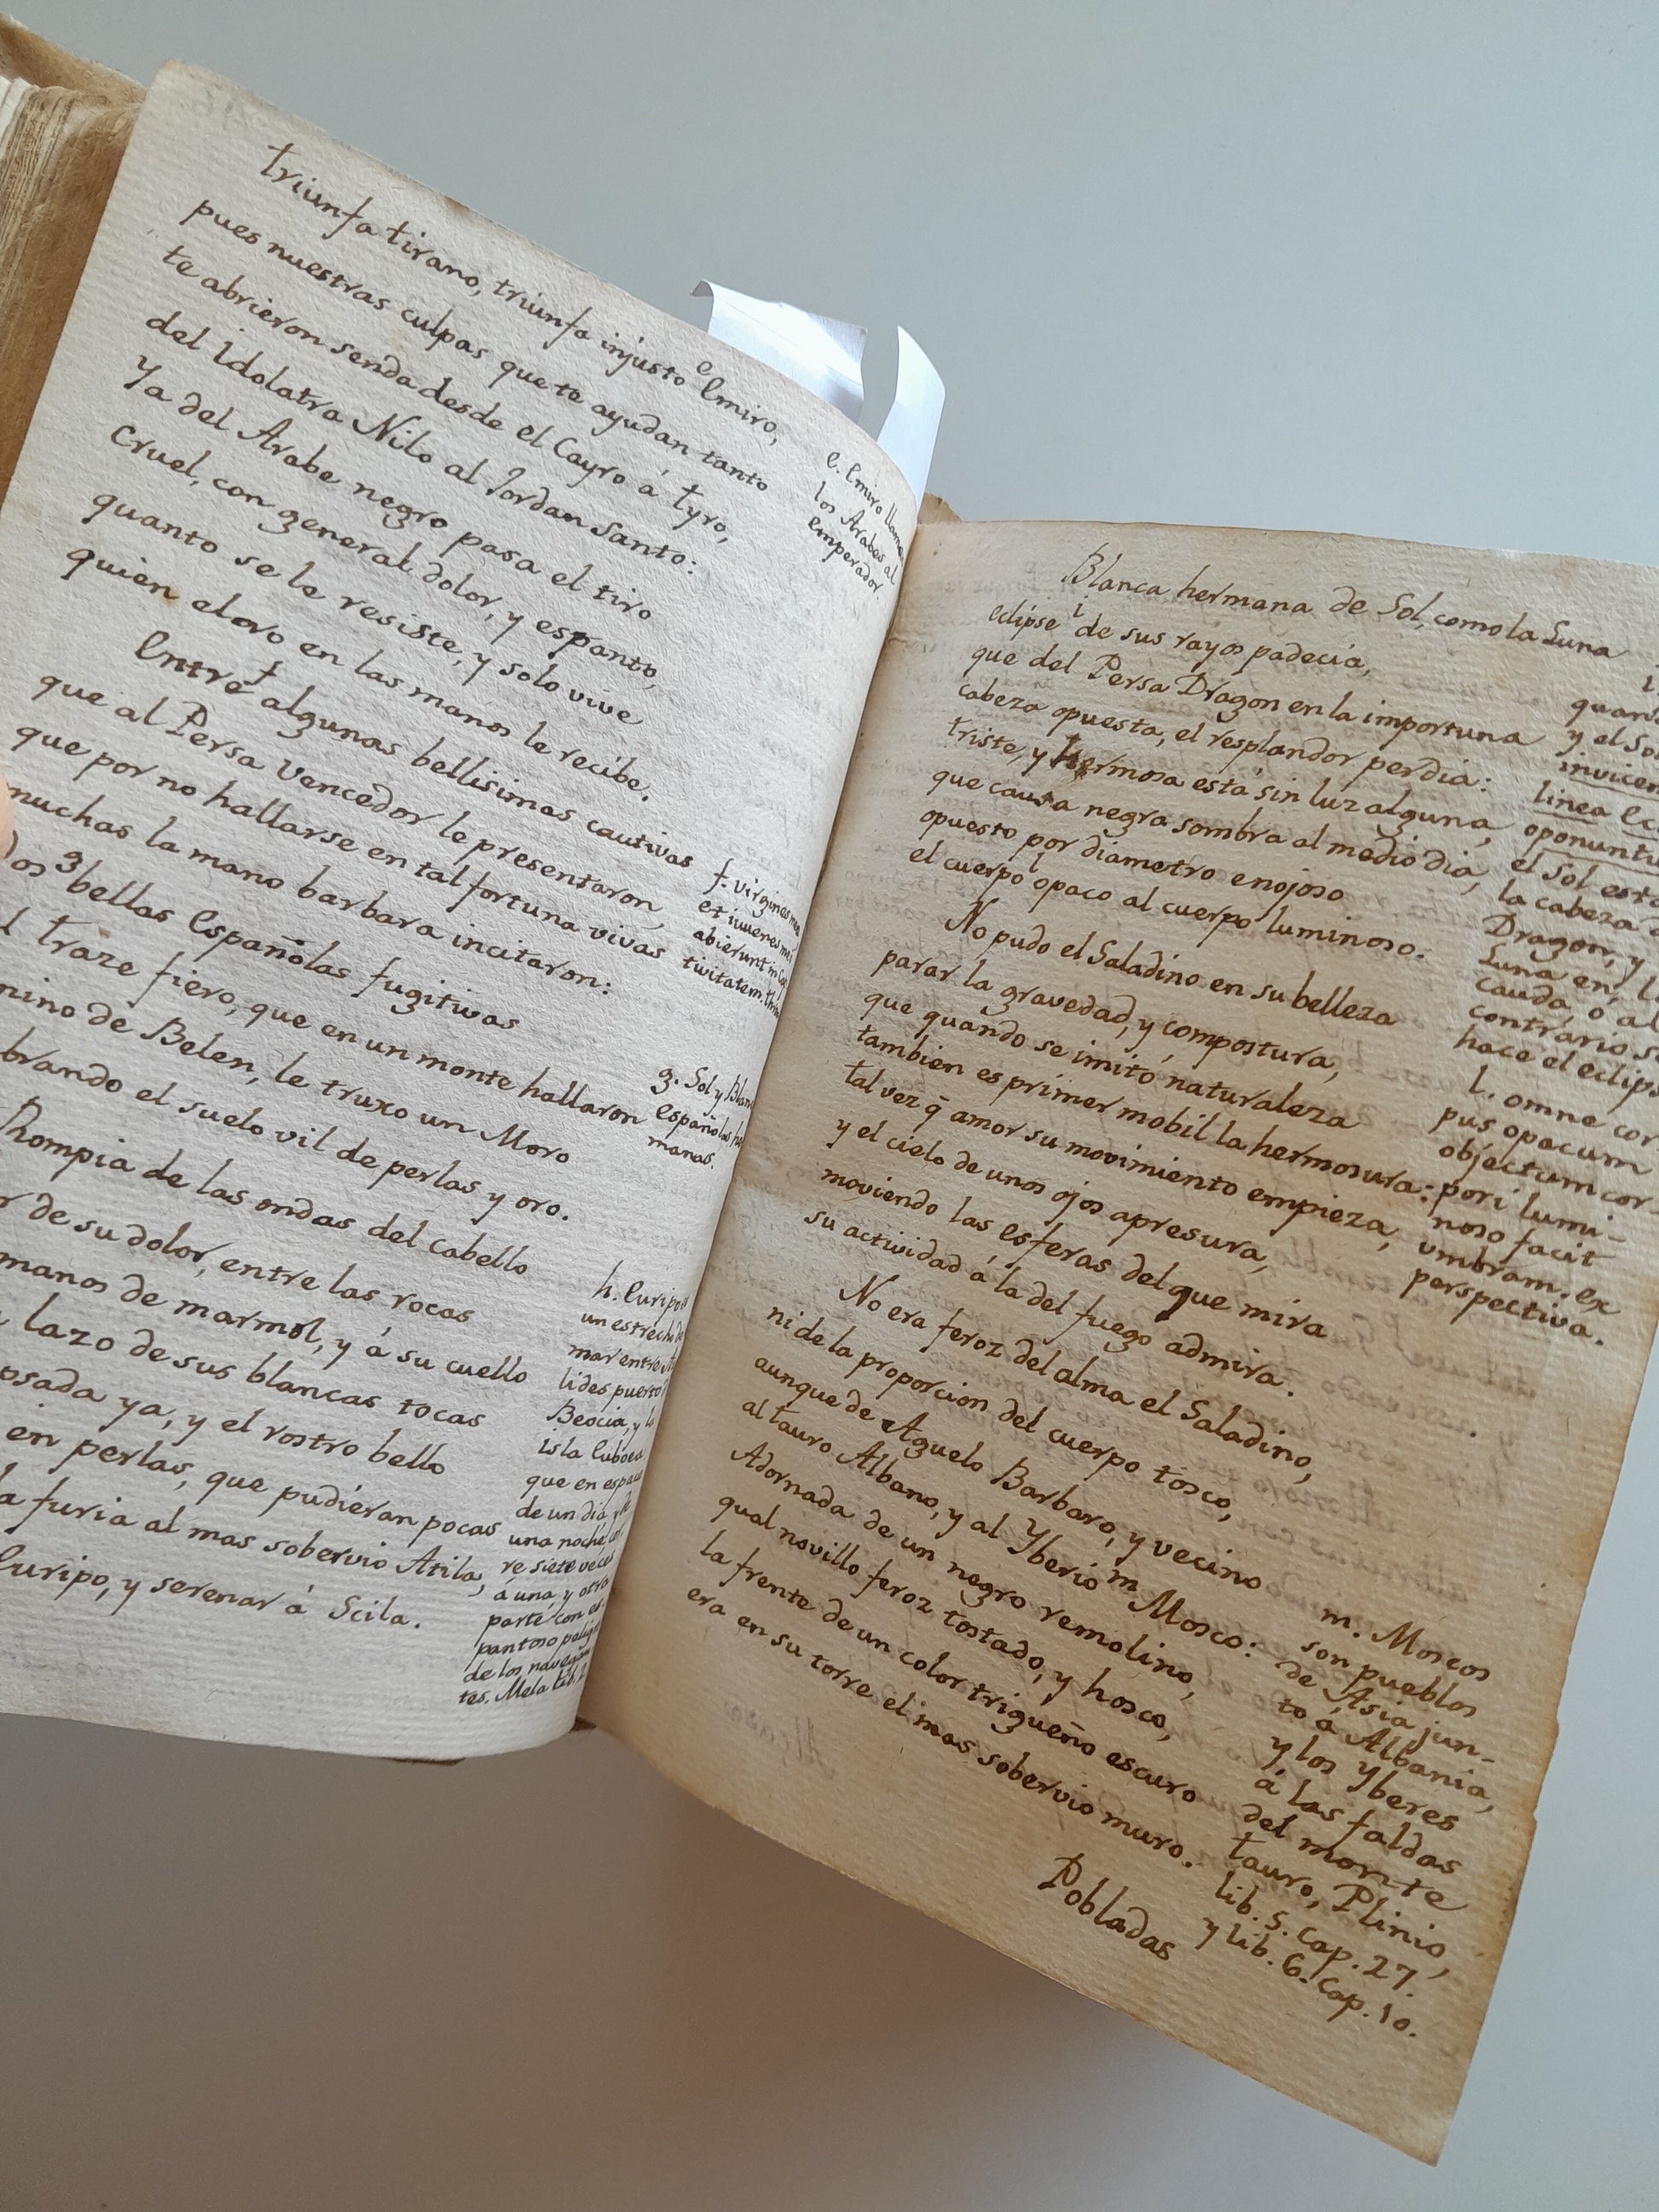 triunfa tirano, triunfa injusto e Emiro,
pues nuestras culpas que te ayudan tanto
te abrieron senda desde el Cayro á tyro,
del Idolatra Nilo al Jordan Santo:
Ya del Arabe negro pasa el tiro
cruel, con general dolor, y espanto,
quanto se le resiste, y solo vive
quien el oro en las manos le recibe.
e. Emiro llaman
los Arabes al
emperador.
Entre f algunas bellisimas cautivas
que al Persa Vencedor le presentaron,
que por no hallarse en tal fortuna vivas
muchas la mano barbara incitaron:
Dos g bellas Españolas fugitivas
traze fiero, que en un monte hallaron
de Belen, le truxo un Moro
brando el suelo vil de perlas y oro.
f. virgines meae
et iuvenes mei
abierunt in cap
tivitatem.
g. Sol y Blanca
españolas her
manas.
Rompia de las ondas del cabello
de su dolor, entre las rocas
manos de marmol, y á su cuello
lazo de sus blancas tocas
ya, y el rostro bello
en perlas, que pudieran pocas
la furia al mas sobervio Atila,
Euripo, y serenar á Scila.
h. Euripo es
un estrecho de
mar entre
lides puerto
Beocia, y la
isla Euboea
que en espacio
de un dia y de
una noche, cor
re siete veces
á una, y otra
parte con es
pantoso peligro
de los navegan
tes. Mela lib. 2.
Blanca hermana de Sol, como la Luna
eclipse i de sus rayos padecia,
que del Persa Dragon en la importuna
cabeza opuesta, el resplandor perdia:
triste, y hermosa está sin luz alguna,
que causa negra sombra al medio dia,
opuesto por diametro enojoso
el cuerpo l opaco al cuerpo luminoso.
quando
y el Sol
invicem
linea
oponuntu
el Sol esta
la cabeza
Dragon, y
Luna en
cauda, ó al
contrario se
hace el eclipse
l. omne cor
pus opacum
objectum cor-
pori lumi-
noso facit
umbram. ex
perspectiva.
No pudo el Saladino en su belleza
parar la gravedad, y compostura,
que quando se imitó naturaleza
tambien es primer mobil la hermosura:
tal vez q̃ amor su movimiento empieza,
y el cielo de unos ojos apresura,
moviendo las esferas del que mira
su actividad á la del fuego admira.
No era feroz del alma el Saladino,
ni de la proporcion del cuerpo tosco,
aunque de Aguelo Barbaro, y vecino
al tauro Albano, y al Yberio m Mosco:
Adornada de un negro remolino,
qual novillo feroz tostado, y hosco,
la frente de un color trigueño escuro
era en su torre el mas sobervio muro.
m. Moscos
son pueblos
de Asia jun-
to á Albania,
y los yberes
á las faldas
del monte
tauro, Plinio,
lib. 5. Cap. 27.
y lib. 6. Cap. 10.
Pobladas